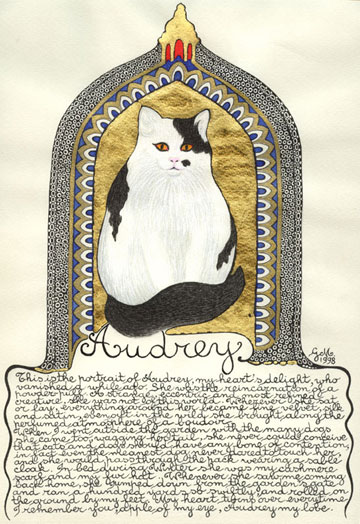 Audrey
G.M. 1998
This is the portrait of Audrey, my heart's delight, who
vanished a while ago. She was the reincarnation of a
powder puff. A strange, eccentric and most refined
creature, she was not of this world. Wherever she sat
or lay, everything around her became fine velvet, silk
and satin, even out in the wild she brought along the
perfumed atmosphere of a boudoir.
When I went outside the garden with the many dogs
she came too, wagging her tail. She never could conceive
that cats and dogs might have any bone of contention,
in fact even the meanest dog never dared to touch her
and she would pass through the pack wearing a sable
cloak. In bed during Winter she was my cashmere
scarf and my fur hat. Whenever she saw me coming
back home, she jumped down from the garden's gate
and ran a hundred yards so swiftly and rolled on
the ground by my feet. My heart flips over everytime
I remember you, apple of my eye, Audrey my love.